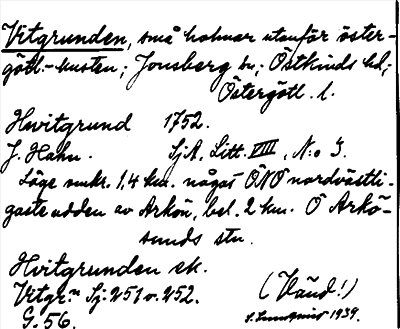 Vitgrunden, små holmar utanför öster-
götl.-kusten; Jonsberg sn; Östkinds hd;
Östergötl. l.
Hwitgrund 1752.
J. Hahn. SjA, Litt. VIII, N:o 3.
Läge omkr. 1,4 km. något ÖNO nordvästli-
gaste udden av Arkön, bel. 2 km. O Arkö-
sunds stn.
Hvitgrunden ek.
Vitgr:n Sj: 251 o. 252. (Vänd!)
G. 56. 1939.